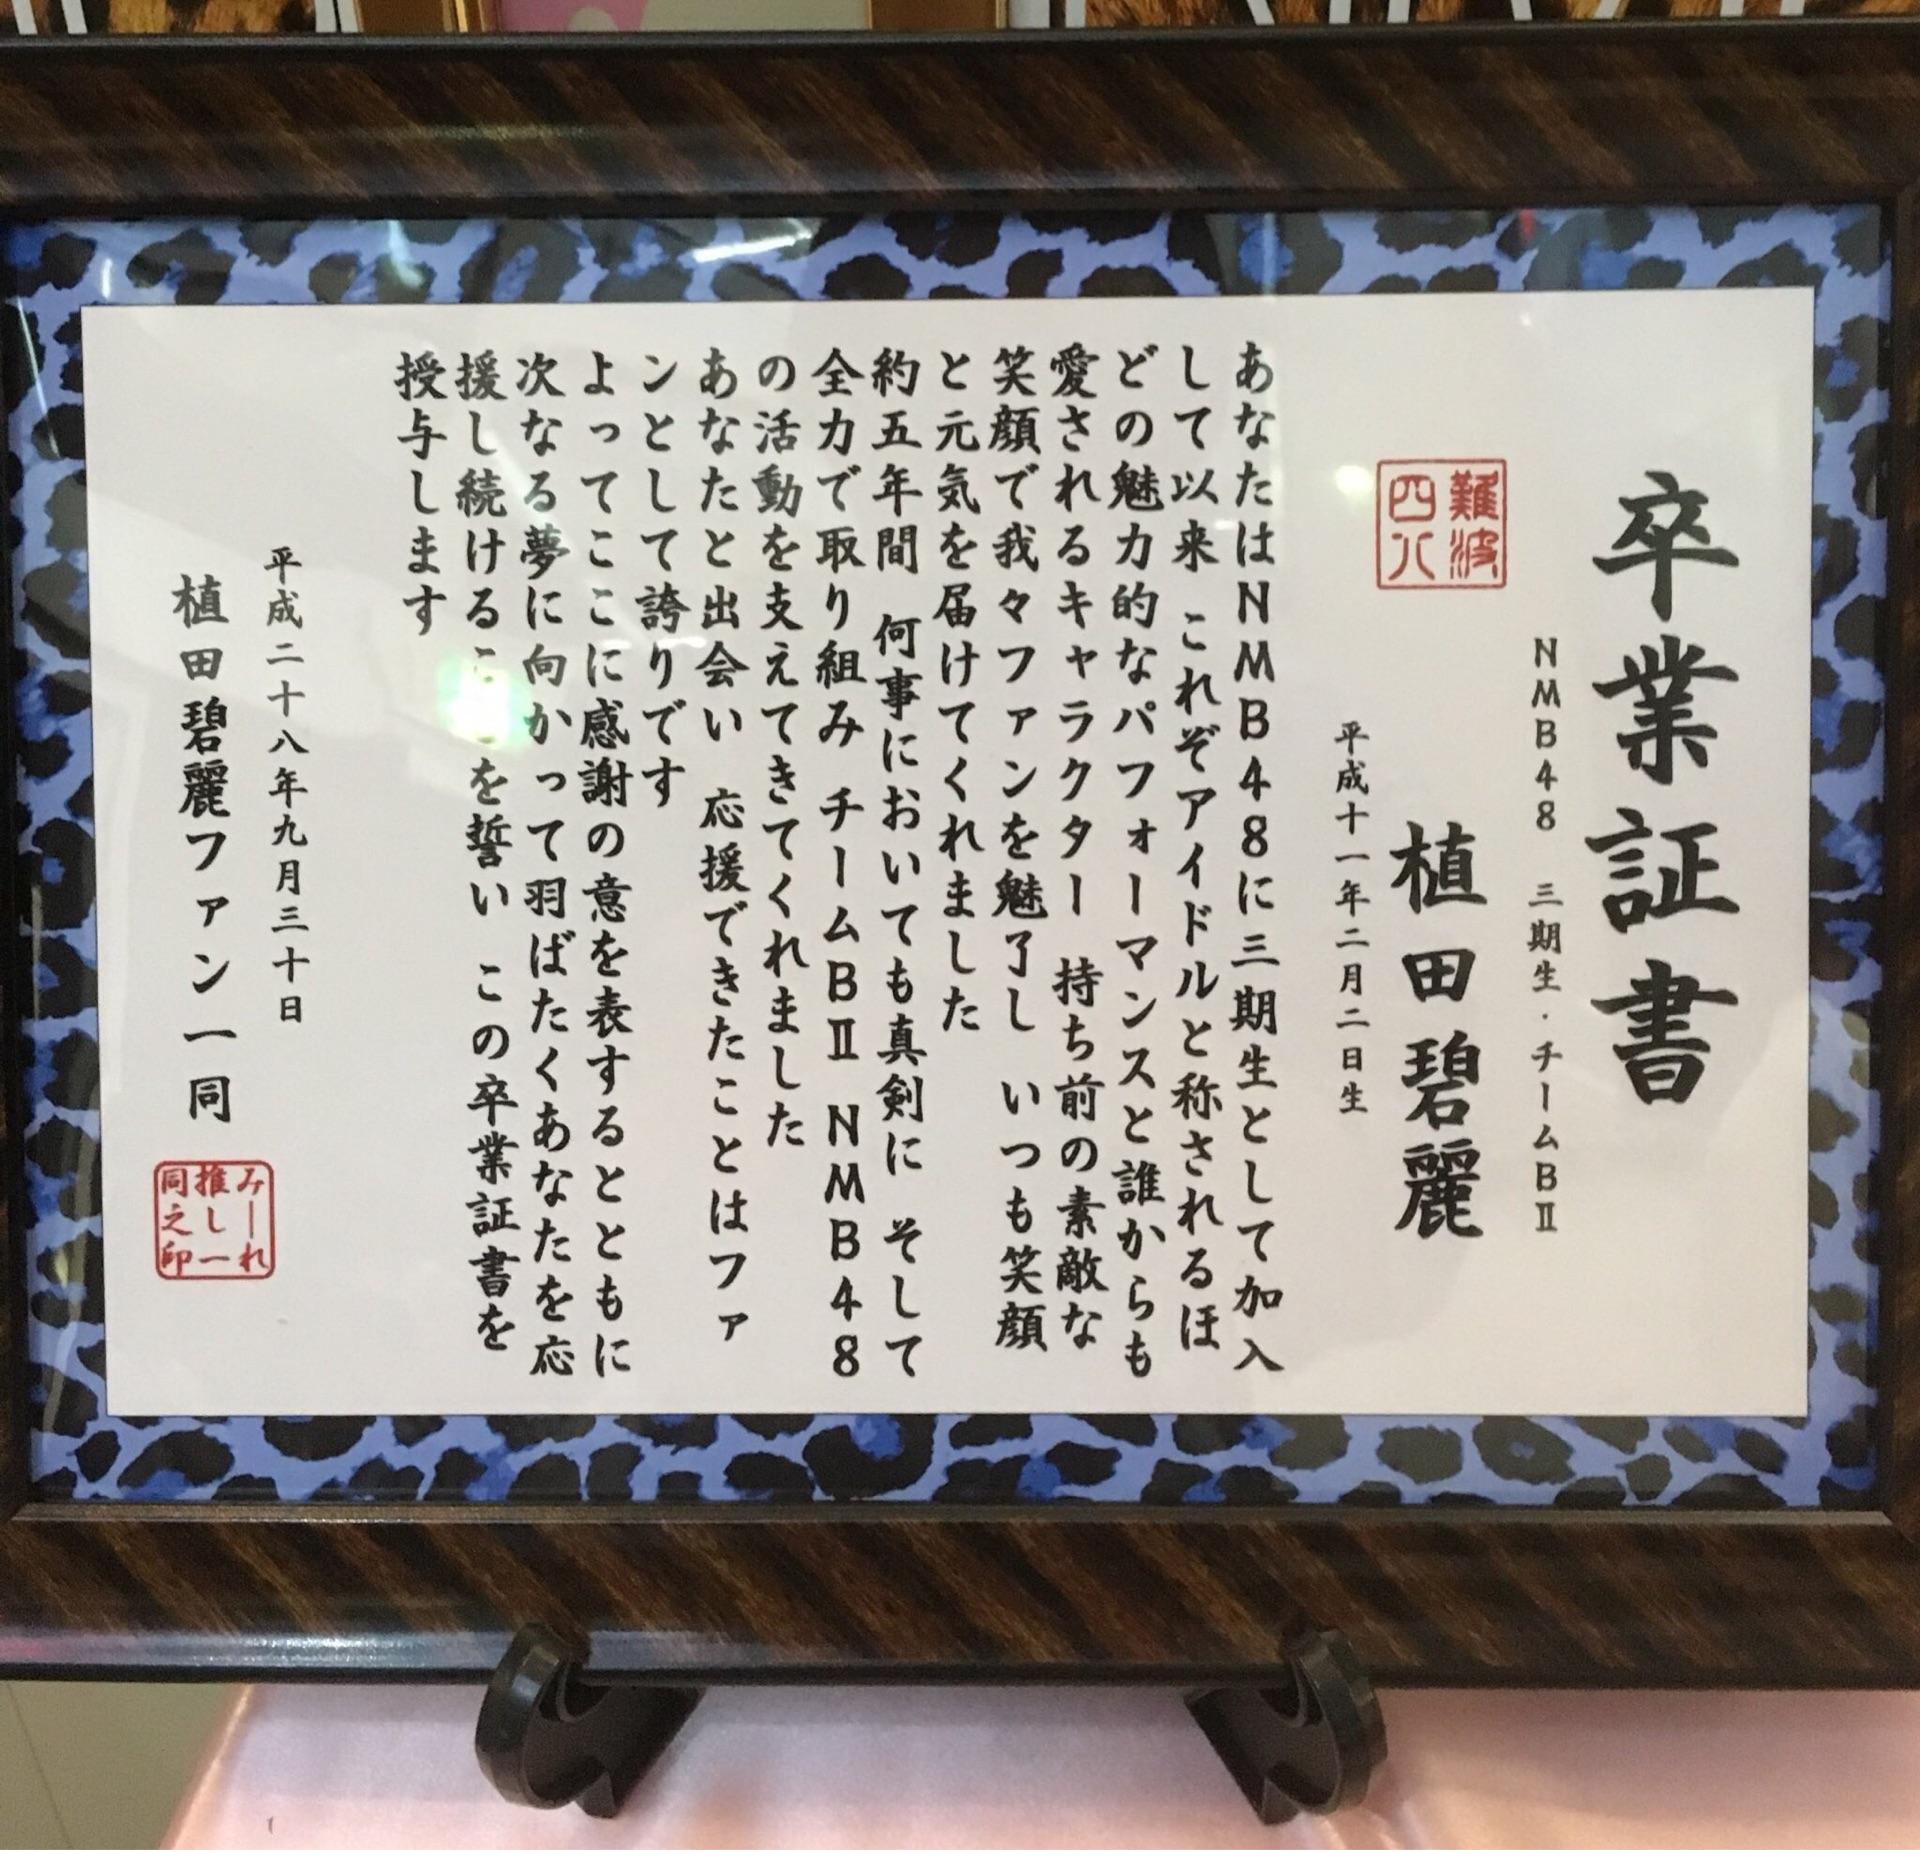 卒業証書
NMB48 三期生・チームBⅡ
植田碧麗
平成十一年二月二日生
難波
四八
あなたはNMB48に三期生として加入
して以来 これぞアイドルと称されるほ
どの魅力的なパフォーマンスと誰からも
愛されるキャラクター 持ち前の素敵な
笑顔で我々ファンを魅了し いつも笑顔
と元気を届けてくれました
約五年間 何事においても真剣に そして
全力で取り組み チームBⅡ NMB48
の活動を支えてきてくれました
あなたと出会い 応援できたことはファ
ンとして誇りです
よってここに感謝の意を表するとともに
次なる夢に向かって羽ばたくあなたを応
援し続けることを誓い この卒業証書を
授与します
平成二十八年九月三十日
植田碧麗ファン一同
みーれ
推し一
同之印